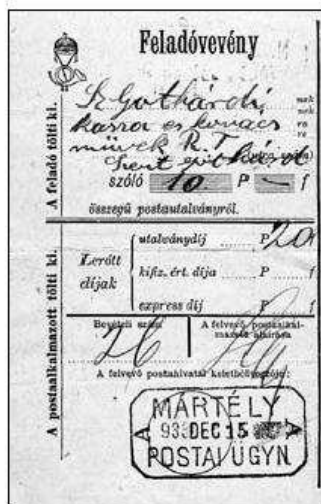 Feladóvevény
A feladó tölti ki.
Sz Gotthárdi
kasza es kovács
művek R.T.
Szent gotthárd
nak
nek
ra
re
szóló 10 P — f
összegű postautalványról.
A postaalkalmazott tölti ki.
Lerótt díjak
utalványdíj P 20
kifiz. ért. díja P f
express díj P f
Bevételi szám
26
A felvevő postaalkal-
mazott aláírása
A felvevő postahivatal keletbélyegzője:
MÁRTÉLY
A 93.DEC 15 A
POSTAI ÜGYN.